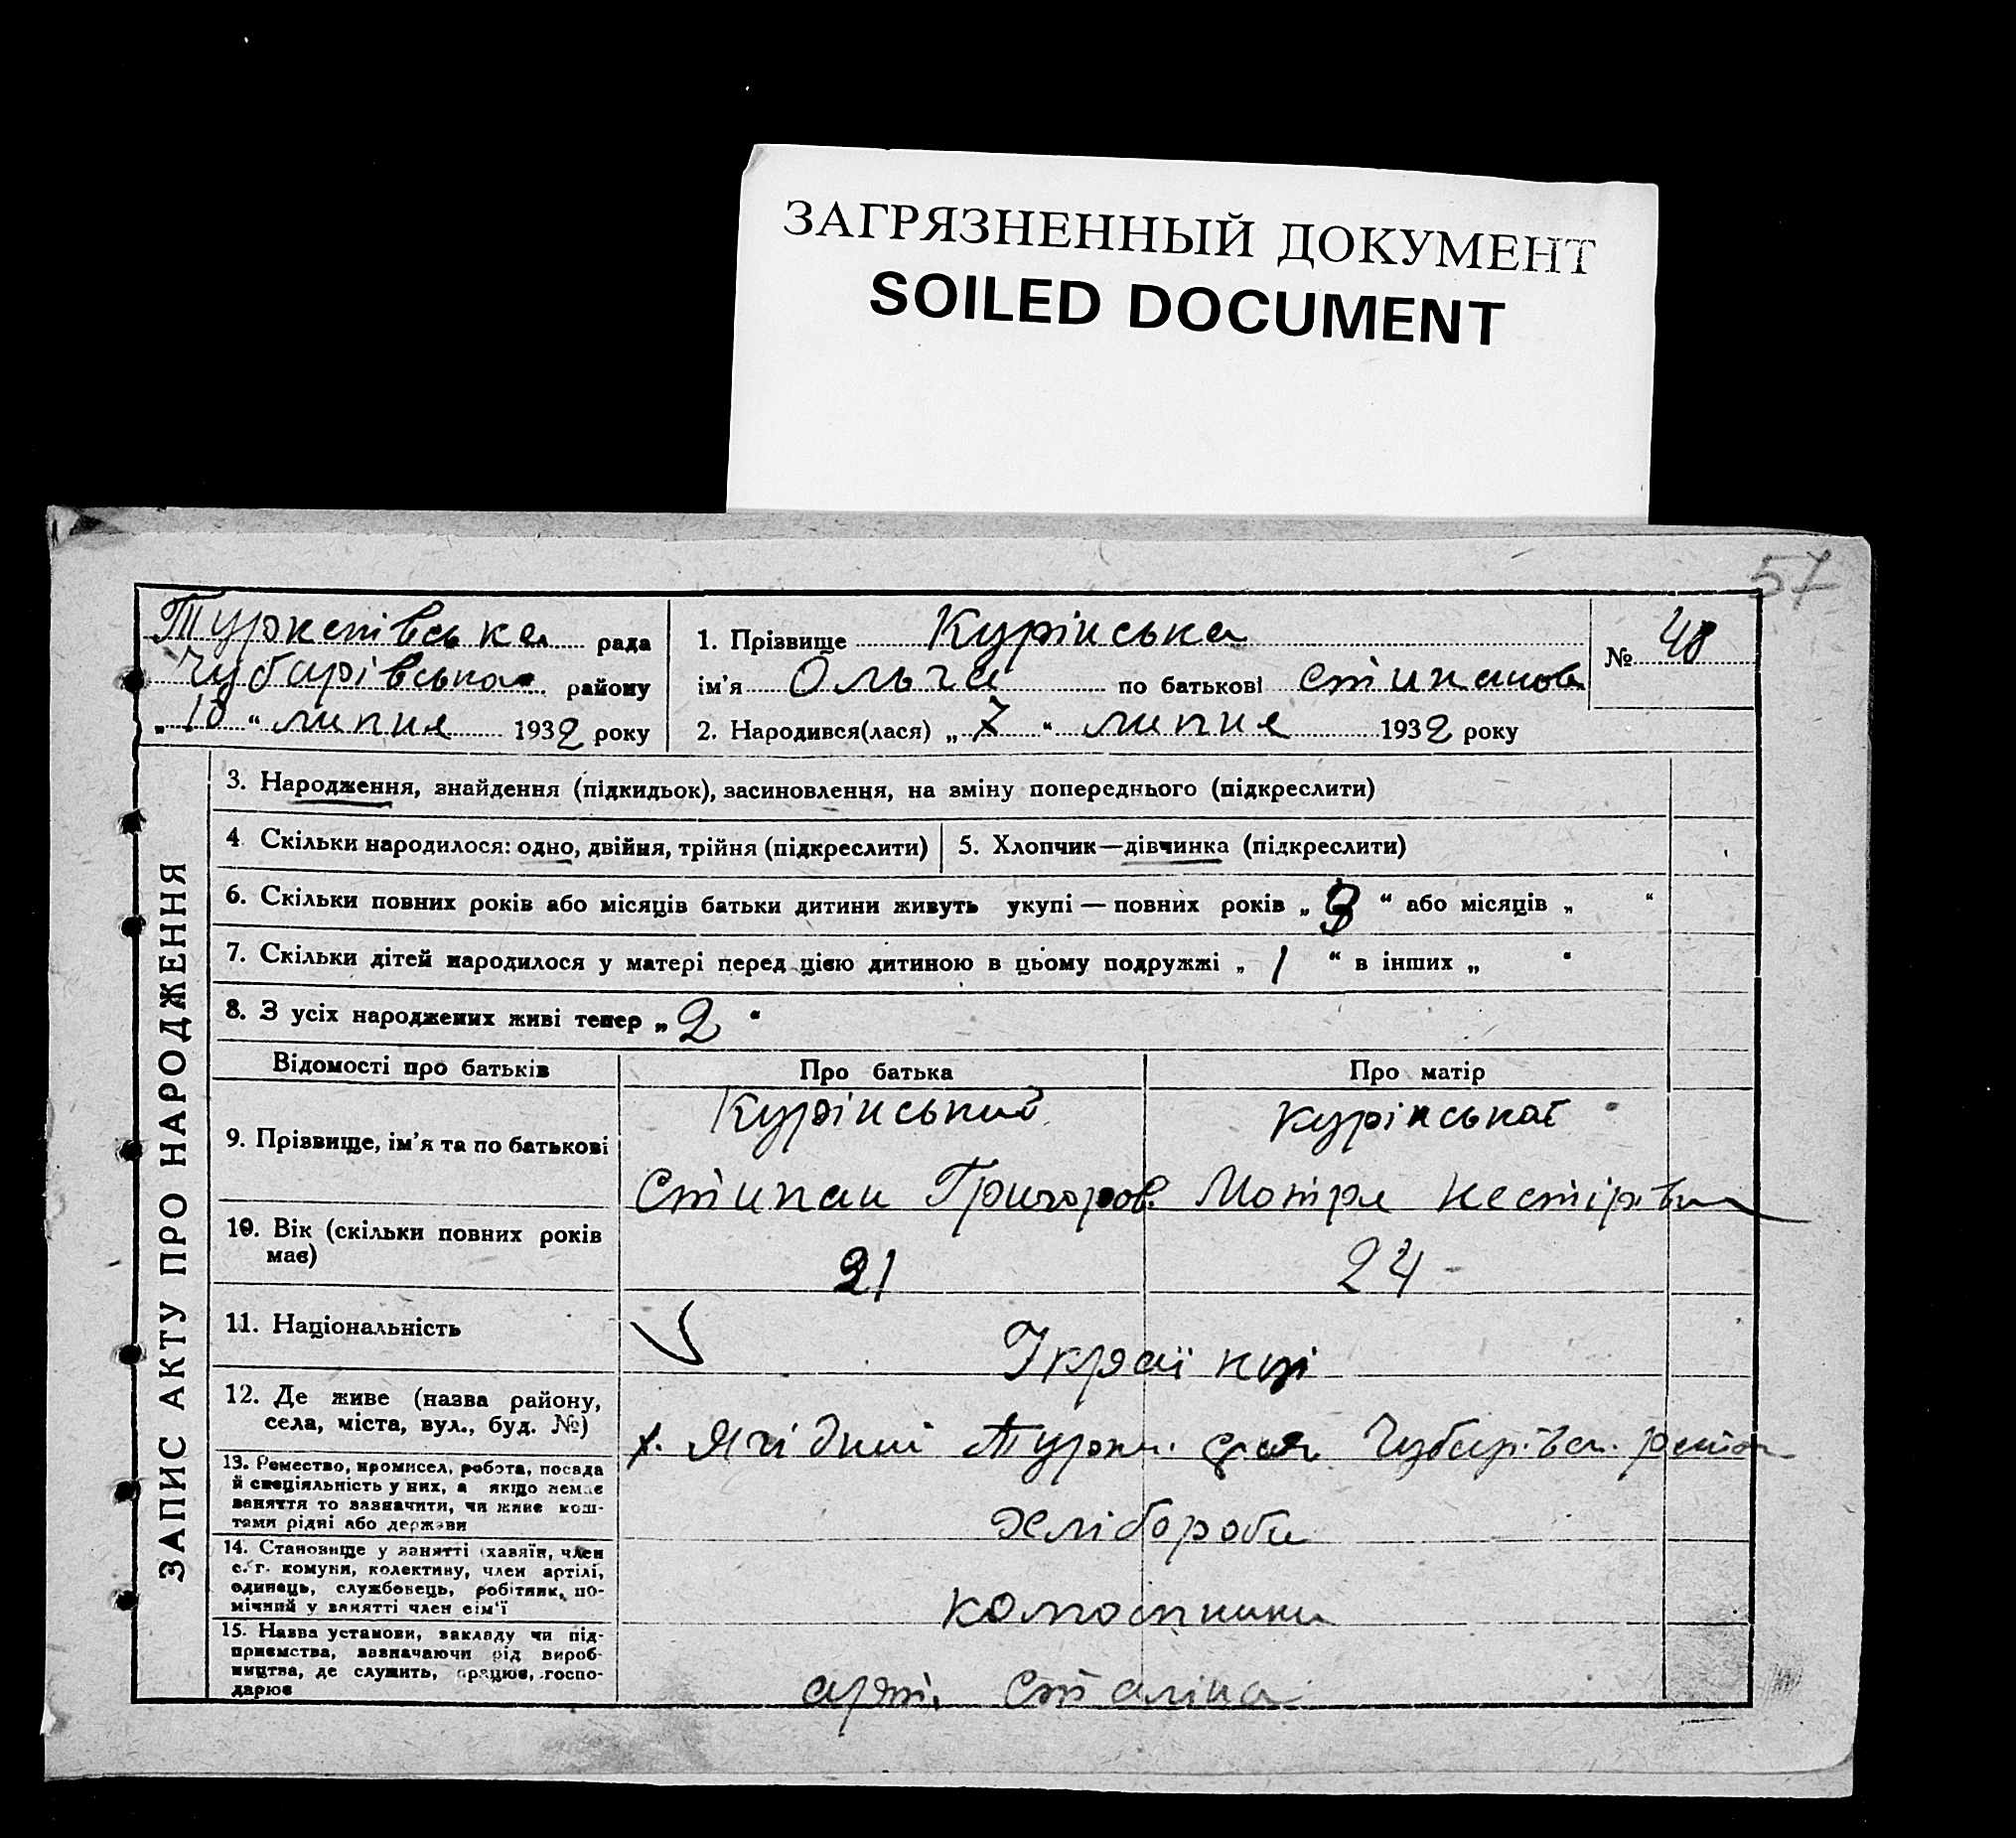 ЗАГРЯЗНЕННЫЙ ДОКУМЕНТ
SOILED DOCUMENT
57
Туркенівська рада
Чубарівська району
„ 10 “ липня 1932 року
1. Прізвище Курінська
ім'я Ольга по батькові Стипанов
2. Народився(лася) „ 7 “ липня 1932 року
№ 48
ЗАПИС АКТУ ПРО НАРОДЖЕННЯ
3. Народження, знайдення (підкидьок), засиновлення, на зміну попереднього (підкреслити)
4 Скільки народилося: одно, двійня, трійня (підкреслити)
5. Хлопчик—дівчинка (підкреслити)
6. Скільки повних років або місяців батьки дитини живуть укупі — повних років „ 3 “ або місяців „ “
7. Скільки дітей народилося у матері перед цією дитиною в цьому подружжі „ 1 “ в інших „ “
8. З усіх народжених живі тепер „ 2 “
Відомості про батьків
Про батька
Про матір
9. Прізвище, ім'я та по батькові
Курінський
Стипан Григоров.
Курінської
Мотря Нестірівна
10. Вік (скільки повних років
має)
21
24
11. Національність
Українці
12. Де живе (назва району,
села, міста, вул., буд. №)
х. Ягідний Турк. Чубарівск. район
13. Ремество, промисел, робота, посада
й спеціяльність у них, а якщо немає
заняття то зазначити, чи живе кош-
тами рідні або держави
хлібороби
14. Становище у занятті (хазяїн, член
с.-г. комуни, колективу, член артілі,
одинець, службовець, робітник, по-
мічний у занятті член сім'ї
колгоспники
15. Назва установи, закладу чи під-
приємства, зазначаючи рід вироб-
ництва, де служить, працює, госпо-
дарює
арті. Сталіна